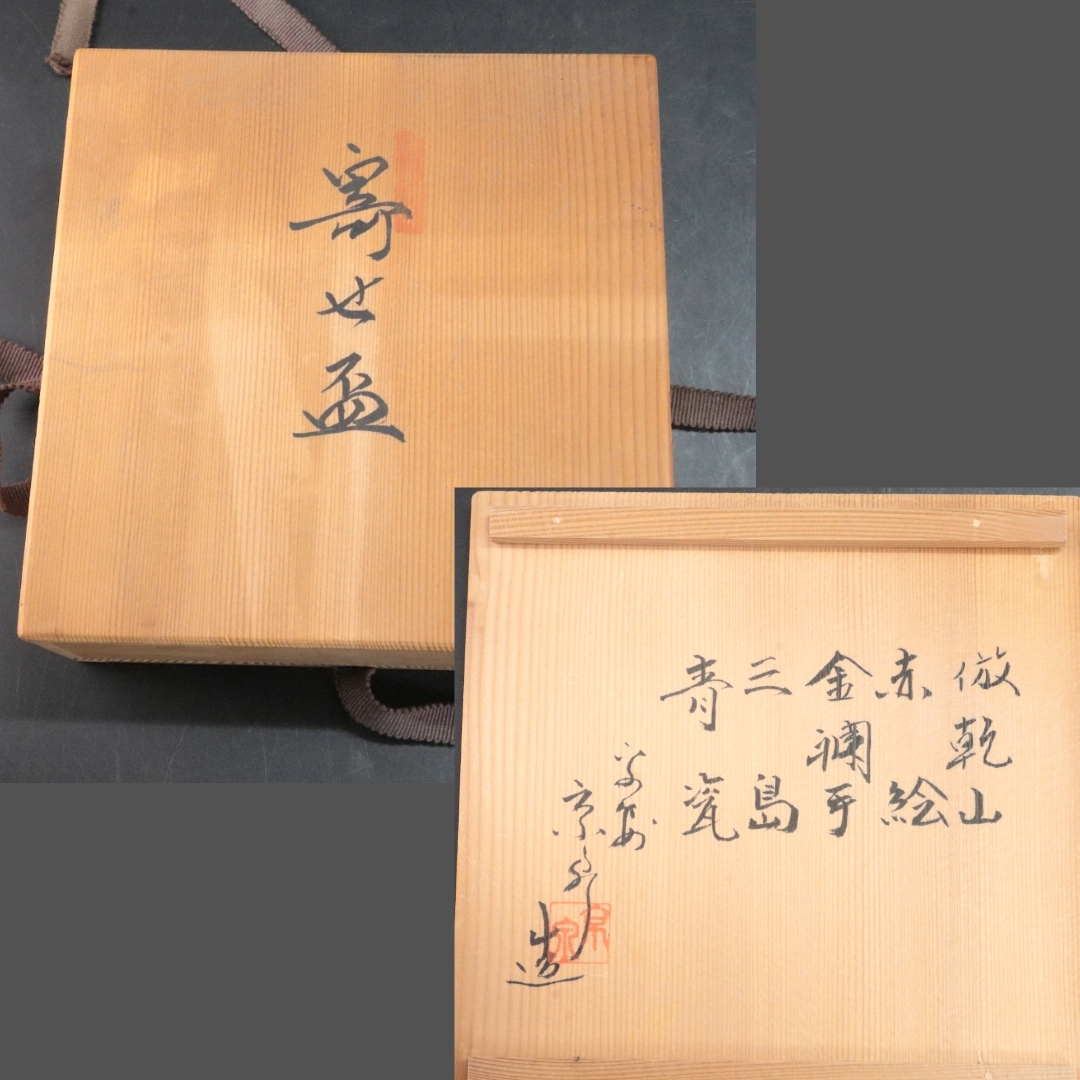 寄せ盃
倣乾山
赤絵
金襴手
三島
青瓷
平安
造